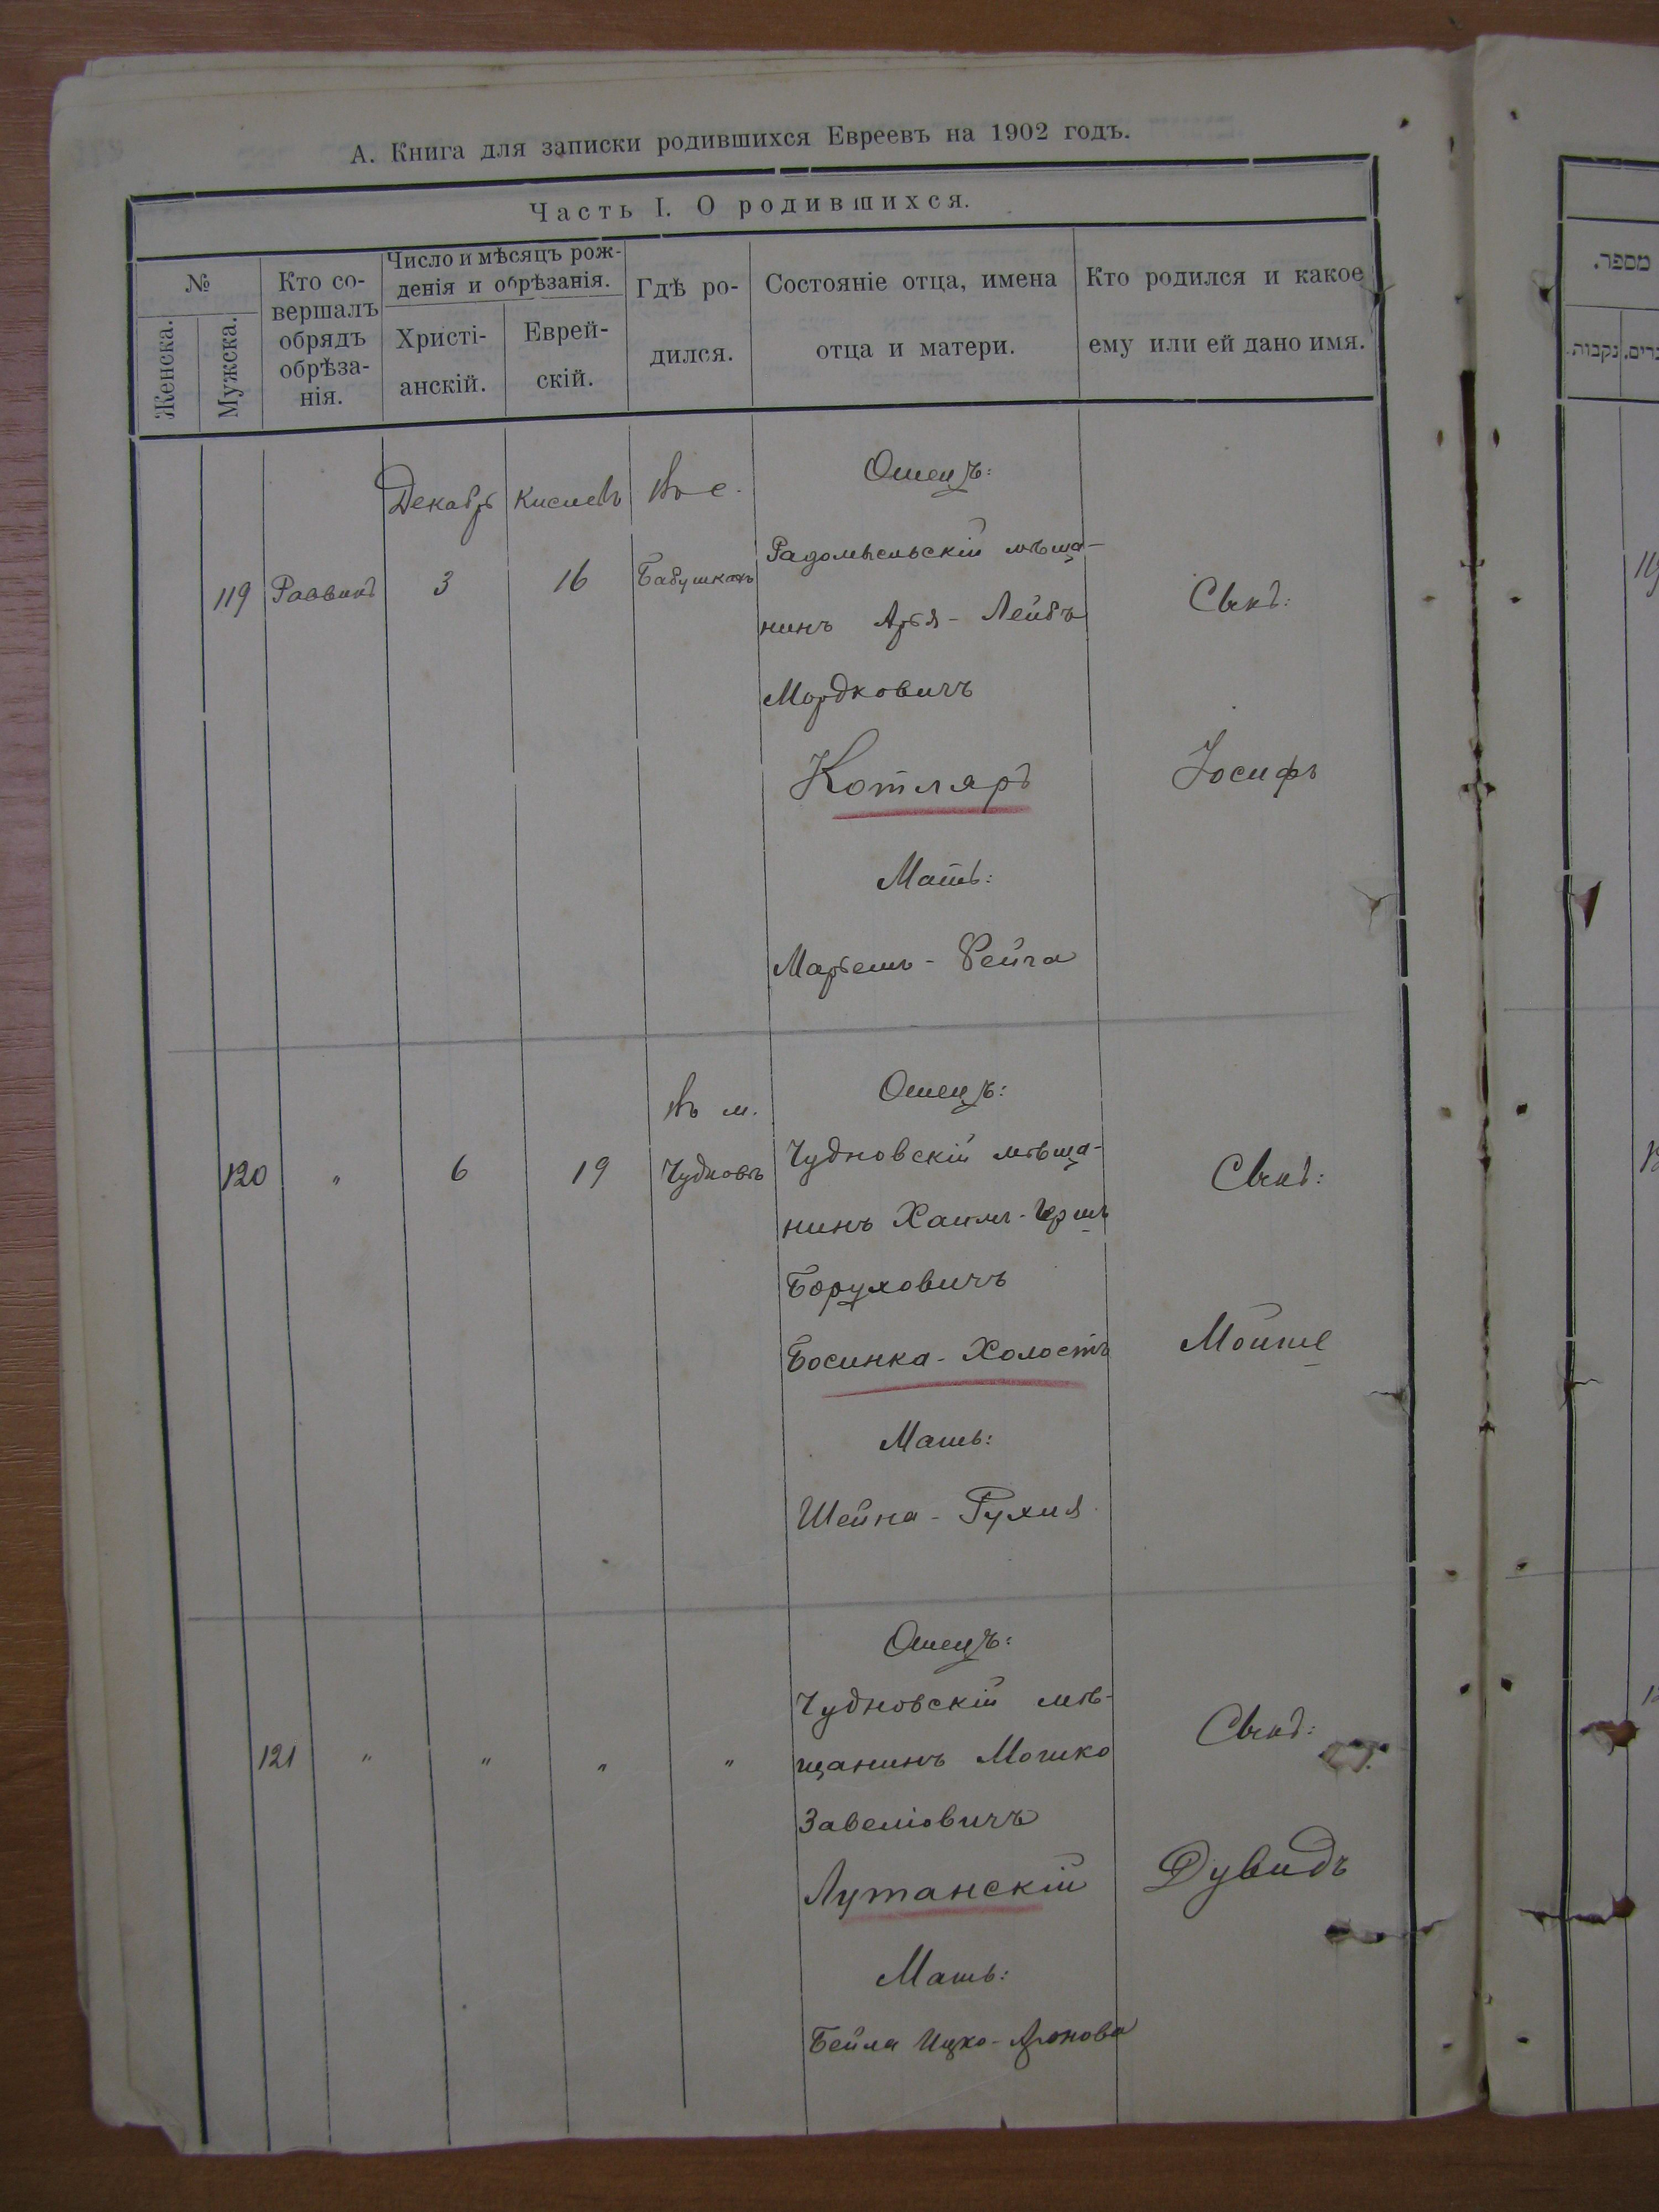 А. Книга для записки родившихся Евреевъ на 1902 годъ.
Часть I. О родившихся.
№
Женска.
Мужска.
Кто со-
вершалъ
обрядъ
обрѣза-
нія.
Число и мѣсяцъ рож-
денія и обрѣзанія.
Христі-
анскій.
Еврей-
скій.
Гдѣ ро-
дился.
Состояніе отца, имена
отца и матери.
Кто родился и какое
ему или ей дано имя.
119
Раввинъ
Декабрь
3
Кислевъ
16
Въ с.
Бабушкахъ
Отецъ:
Радомысльскій мѣща-
нинъ Арья-Лейбъ
Мордковичъ
Котляръ
Мать:
Марьемъ-Рейга
Сынъ:
Іосифъ
120
"
6
19
Въ м.
Чудновъ
Отецъ:
Чудновскій мѣща-
нинъ Хаимъ-Гершъ
Боруховичъ
Босинка-Холостъ
Мать:
Шейна-Рухля
Сынъ:
Мойше
121
"
"
"
"
Отецъ:
Чудновскій мѣ-
щанинъ Мошко
Завеліовичъ
Лутанскій
Мать:
Бейла Ицко-Ароновa
Сынъ:
Дувидъ
מספר.
נקבות.